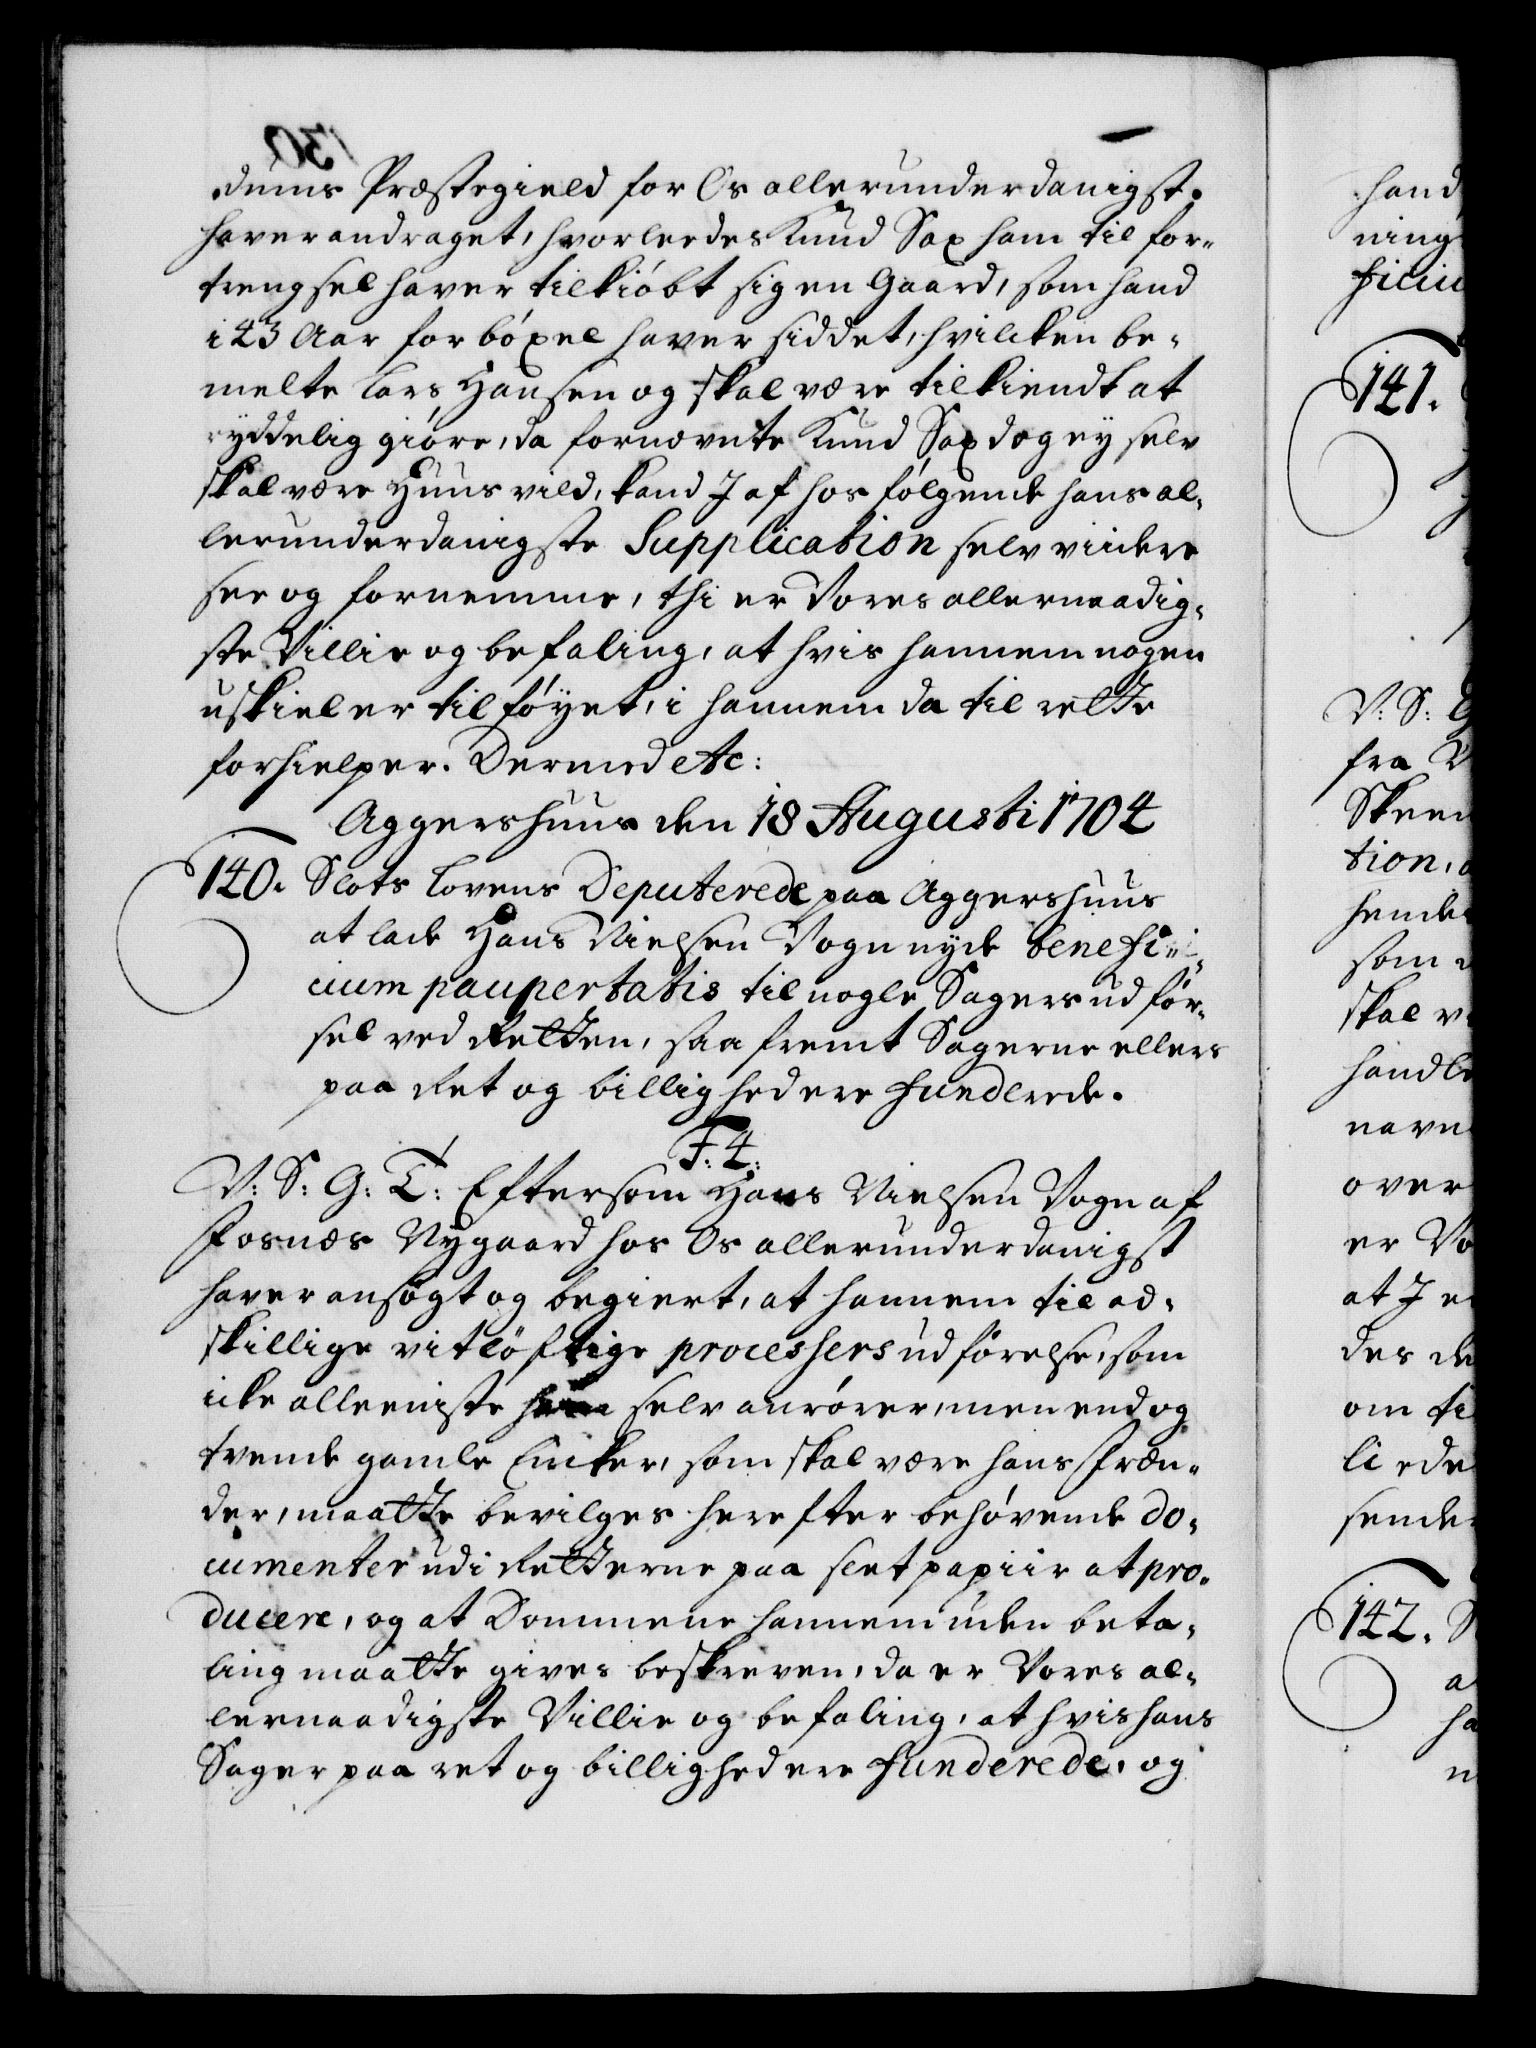 dums Præstegield for Os allerunderdanigst.
haver andraget, hvorledes Knud Sax ham til for-
trengsel haver tilkiøbt sig en Gaard, som hand
i 43 Aar for bøxel haver siddet, hvilcken be-
melte Lars Hansen og skal være tilkiendt at
ryddelig giøre, da fornevnte Knud Sax dog ey selv
skal være Huusvild, kand J af hos følgende hans al-
lerunderdanigste Supplication selv viidere
see og fornemme, thi er Vores allernaadig-
ste Villie og befaling, at hvis hannem nogen
uskiel er tilføyet, i hannem da til rette
forhielper. Dermed etc:
Aggershuus den 18 Augusti 1704
140. Slots Lovens Deputerede paa Aggershuus
at lade Hans Nielsen Vogn nyde benefi-
cium paupertatis til nogle Sagers udfør-
sel ved Retten, saa fremt Sagerne ellers
paa Ret og billighed ere funderede.
F: 4:
V: S: G: T: Eftersom Hans Nielsen Vogn af
Fosnæs Nygaard hos Os allerunderdanigst
haver ansøgt og begiert, at hannem til ad-
skillige vitløftige processers udførelse, som
icke alleeniste ham selv anrører, men end og
tvende gamle Encker, som skal være hans Fræn-
der, maatte bevilges herefter behøvende do-
cumenter udi Retterne paa slet papiir at pro-
ducere, og at Dommene hannem uden beta-
ling maatte gives beskreven, da er Vores al-
lernaadigste Villie og befaling, at hvis hans
Sager paa ret og billighed ere funderede, og
130
hand
ning
ficiu
141.
V: S: G
fra
Skeen
tion,
hende
som
skal v
handle
navn
over
er Vo
at J
des de
om ti
li ede
sende
142.
a
ha
n